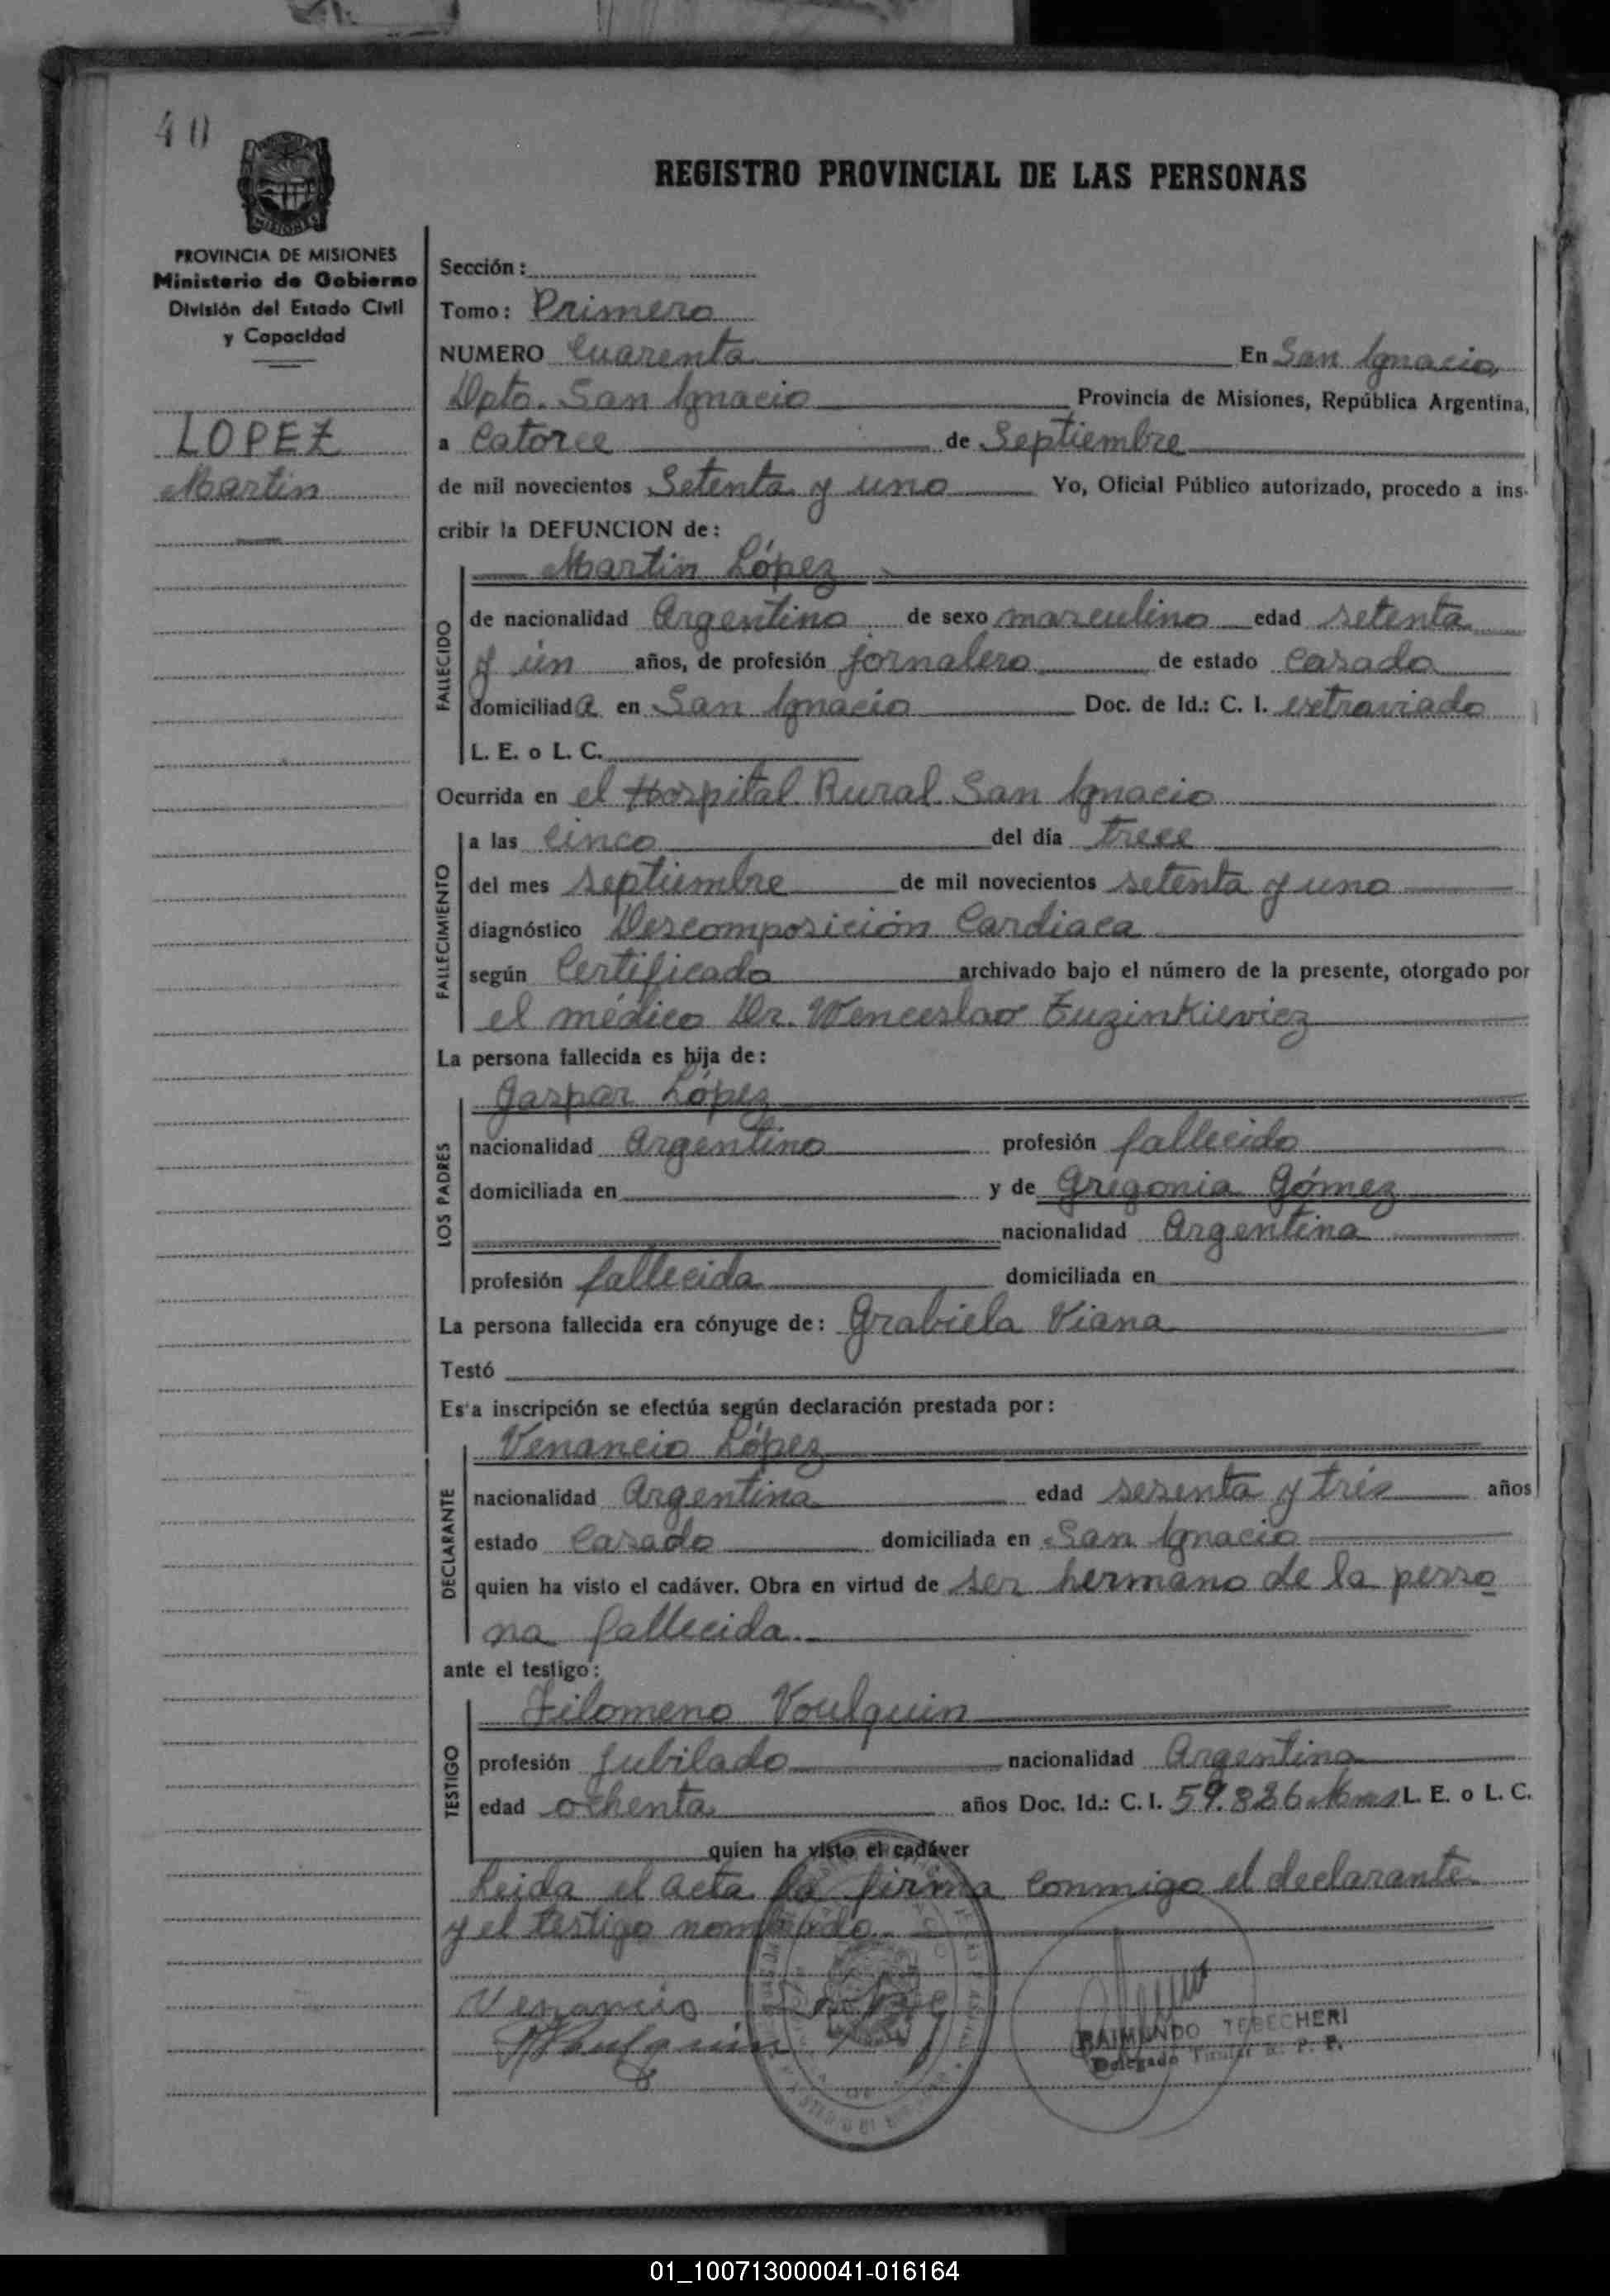 40
REGISTRO PROVINCIAL DE LAS PERSONAS
PROVINCIA DE MISIONES
Ministerio de Gobierno
División del Estado Civil
y Capacidad
LOPEZ
Martin
Sección:
Tomo: Primero
NUMERO Cuarenta En San Ignacio,
Dpto. San Ignacio Provincia de Misiones, República Argentina,
a Catorce de Septiembre
de mil novecientos Setenta y uno Yo, Oficial Público autorizado, procedo a ins-
cribir la DEFUNCION de:
FALLECIDO
Martin López
de nacionalidad Argentino de sexo masculino edad setenta
y un años, de profesión jornalero de estado Casado
domiciliada en San Ignacio Doc. de Id.: C. I. extraviado
L. E. o L. C.
Ocurrida en el Hospital Rural San Ignacio
FALLECIMIENTO
a las Cinco del día trece
del mes septiembre de mil novecientos setenta y uno
diagnóstico Descomposición Cardiaca
según Certificado archivado bajo el número de la presente, otorgado por
el médico Dr. Wenceslao
La persona fallecida es hija de:
LOS PADRES
Gaspar López
nacionalidad Argentino profesión fallecido
domiciliada en y de Gregonia Gómez
nacionalidad Argentina
profesión fallecida domiciliada en
La persona fallecida era cónyuge de: Grabiela Viana
Testó
Es'a inscripción se efectúa según declaración prestada por:
DECLARANTE
Venancio López
nacionalidad Argentina edad sesenta y tres años
estado Casado domiciliada en San Ignacio
quien ha visto el cadáver. Obra en virtud de ser hermano de la perso
na fallecida.
ante el testigo:
TESTIGO
Filomeno Voulquin
profesión Jubilado nacionalidad Argentino
edad ochenta años Doc. Id.: C. I. 59.826 Mnes L. E. o L. C.
quien ha visto el cadáver
Leida el acta la firma Conmigo el declarante
y el testigo nombrado.
Venancio Lopez
Voulquin
RAIMUNDO TEBECHERI
Delegado Titular R. P. P.
01_100713000041-016164